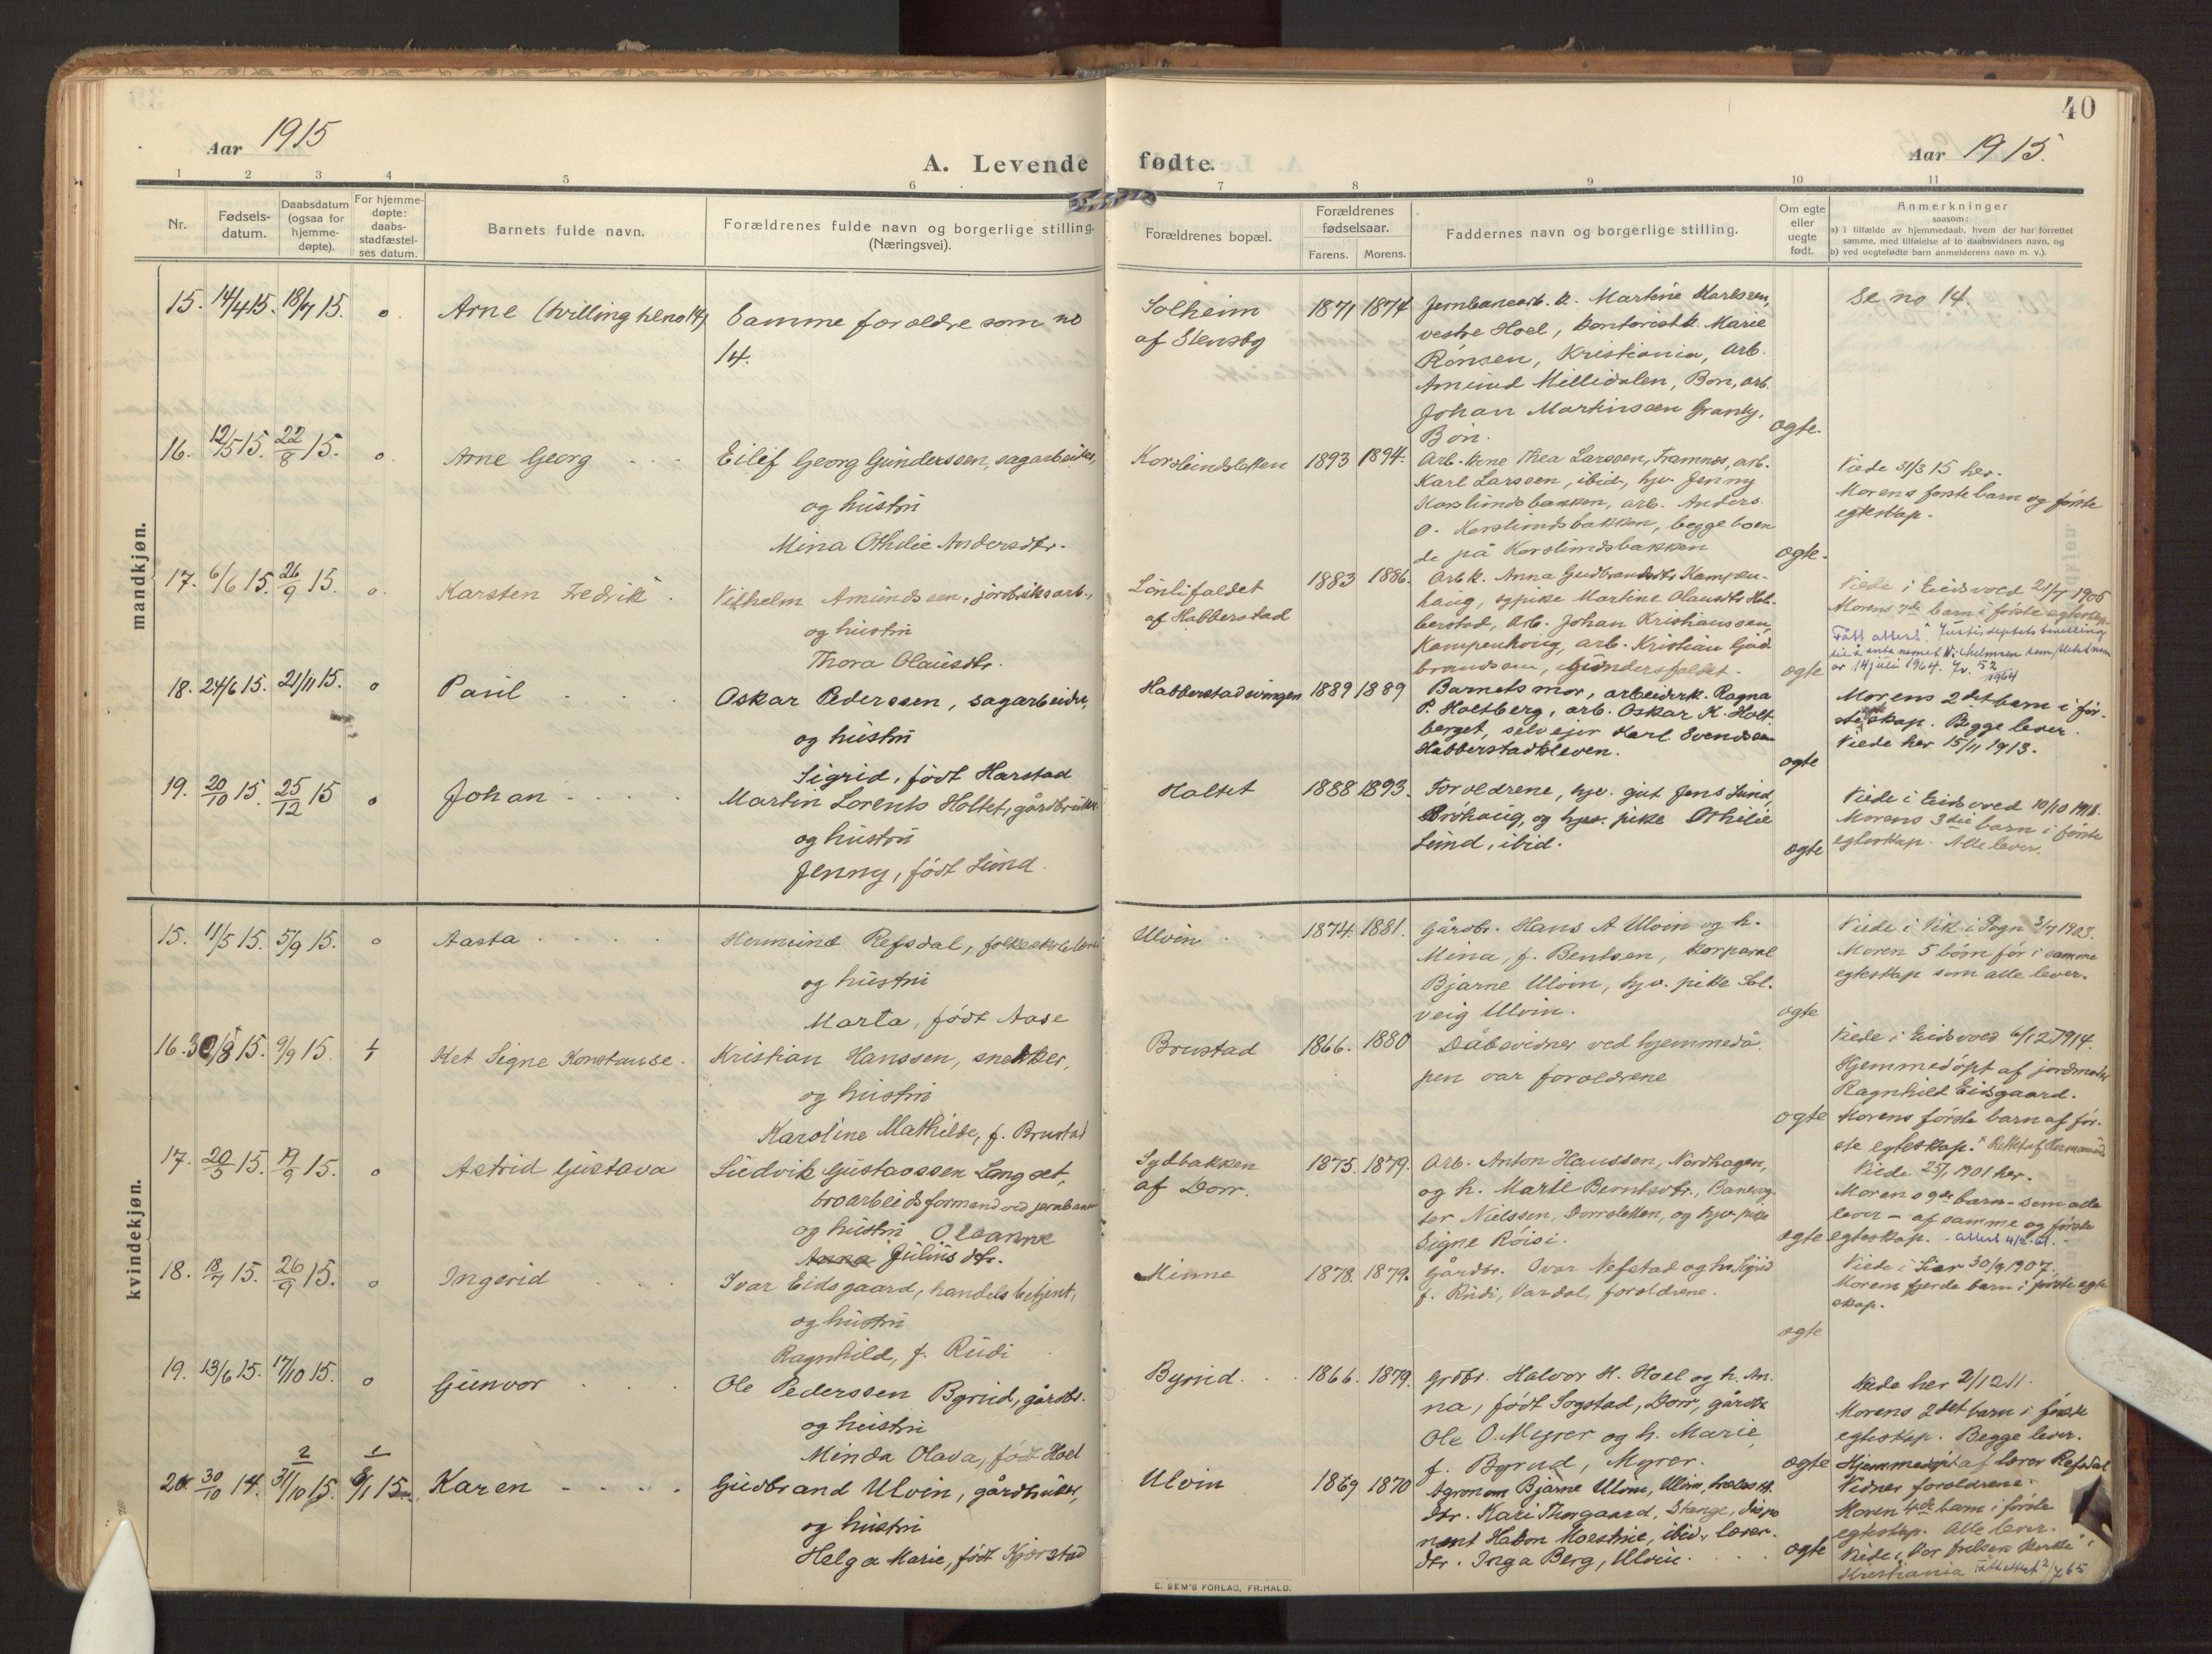 40
Aar 1915
A. Levende fødte.
Aar 1915.
1 2 3 4 5 6 7 8 9 10 11
Nr.
Fødsels-
datum.
Daabsdatum
(ogsaa for
hjemme-
døpte).
For hjemme-
døpte:
daabs-
stadfæstel-
ses datum.
Barnets fulde navn.
Forældrenes fulde navn og borgerlige stilling.
(Næringsvei).
Forældrenes bopæl.
Forældrenes
fødselsaar.
Farens. Morens.
Faddernes navn og borgerlige stilling.
Om egte
eller
uegte
født.
Anmerkninger
saasom:
a) i tilfælde av hjemmedaab, hvem der har forrettet
samme, med tilføielse af to daabsvidners navn, og
b) ved uegtefødte barn anmelderens navn m. v.).
mandkjøn.
15. 14/4 15. 18/7 15. o. Arne (tvilling til no 14)
Samme foroldre som no
14.
Solheim
af Stensby
1871 1874
Jernbanearb. k. Martine Karlsen,
vestre Hoel, kontorist k. Marie
Rönsen, Kristiania, arb.
Amund Millidalen, Bön, arb.
Johan Martinssen Granly,
Bön.
ogte.
Se no 14.
16. 12/5 15. 22/8 15. o. Arne Georg
Eilef Georg Gunderssen, sagarbeider,
og hustru
Mina Othilie Andersdtr.
Korslundsletten
1893 1894.
Arb. kone Thea Larssen, Framnes, arb.
Karl Larssen, ibid., hjv. Jenny
Korslundsbakken, arb. Anders
O. Korslundsbakken, begge boen
de på Korslundsbakken
ogte.
Viede 31/3 15 her.
Morens förste barn og förste
egteskap.
17. 6/6 15. 26/9 15. o. Karsten Fredrik
Vilhelm Amundssen, jordbruksarb.,
og hustru
Thora Olausdtr.
Lönlifaldet
af Habberstad
1883 1886.
Arb. k. Anna Gudbrandsdtr Kampen-
haug, sypike Martine Olausdtr Hab-
berstad, arb. Johan Kristianssen,
Kampenhaug, arb. Kristian Gud-
brandsen, Gundersfaldet.
ogte
Viede i Eidsvold 21/7 1906
Morens 7de barn i förste egteskap.
Fått attest. Justisdeptets bevilling
til å anta navnet Vilhelmsen som slektsnavn
av 14 juli 1964. Jv. 52/1964
18. 24/6 15. 21/11 15. o Paul
Oskar Pederssen, sagarbeider,
og hustru
Sigrid, født Harstad
Habberstadsvingen
1889 1889
Barnets mor, arbeiderk. Ragna
P. Holtberg, arb. Oskar K. Holt-
berget, selveier Karl Svendsen
Habberstadkleven.
ogte
Morens 2det barn i för-
ste egteskap. Begge lever.
Viede her 15/11 1913.
19. 20/10 15. 25/12 15 o Johan
Martin Lorents Holtet, gårdbruker
og hustru
Jenny, født Lund.
Holtet
1888 1893.
Foroldrene, hjv. gut Jens Lund,
Bröhaug, og hjv. pike Othilie
Lund, ibid.
ogte
Viede i Eidsvold 10/10 1912.
Morens 3die barn i förste
egteskap. Alle lever.
kvindekjøn.
15. 11/5 15. 5/9 15. o Aasta
Hermund Refsdal, folkeskolelærer
og hustru
Marta, født Aase
Ulvin
1874. 1881.
Gårdbr. Hans A Ulvin og h.
Mina, f. Bentsen, korporal
Bjarne Ulvin, hjv. pike Sol-
veig Ulvin.
ogte
Viede i Vik i Sogn 3/7 1903.
Moren 5 börn för i samme
egteskap som alle lever.
16. 30/8 15. 9/9 15. Ket Signe Konstanse.
Kristian Hanssen, snekker,
og hustru
Karoline Mathilde, f. Brustad
Brustad
1866. 1880
Dåbsvidner ved hjemmedå-
pen var foroldrene
ogte
Viede i Eidsvold 6/12 1914.
Hjemmedöpt af jordmoder
Ragnhild Eidsgaard.
Morens förste barn af för-
ste egteskap.
17. 20/5 15. 19/9 15. o Astrid Gustava
Ludvik Gustavssen Langset,
broarbeidsformand ved jernbanen
og hustru Oleanne
Anna Juliusdtr.
Sydbakken
af Dorr.
1875. 1879.
Arb. Anton Hanssen, Nordhagen,
og h. Marte Berntsdtr., Banevog-
ter Nielssen, Dorrsletten, og hjv. pike
Signe Röisi.
ogte
Viede 25/1 1901 her.
Morens 9de barn - som alle
lever - af samme og förste
egteskap. - Attest 4/2-61.-
18. 18/7 15. 26/9 15. o Ingerid
Ivar Eidsgaard, handelsbetjent,
og hustru
Ragnhild, f. Rudi
Minne
1878. 1879.
Gårdbr. Ivar Nefstad og h. Sigrid
f. Rudi, Vardal, foroldrene.
ogte
Viede i Lier 30/9 1907.
Morens fjerde barn i förste egte
skap.
19. 13/6 15. 17/10 15. o Gunvor
Ole Pederssen Byrud, gårdbr.
og hustru
Minda Olava, født Hoel
Byrud
1866. 1879.
Grdbr. Halvor H. Hoel og h. An-
na, født Sogstad, Dorr, gårdbr
Ole O. Myrer og h. Marie,
f. Byrud, Myrer.
ogte
Viede her 2/12 11.
Morens 2det barn i förste
egteskap. Begge lever.
20. 30/10 14. 31/10 15. 2/1 15 Karen
Gudbrand Ulvin, gårdbruker,
og hustru
Helga Marie, født Kjærstad
Ulvin
1869 1870
Agronom Bjarne Ulvin, Ulvin,
dtr. Kari Thorgaard, Stange, dispo
nent Hakon Moestue, ibid., lærer-
dtr. Inga Berg, Ulvin.
ogte
Hjemmedöpt af lærer Refsdal
Vidner foroldrene.
Moren 4de barn i förste
egteskap. Alle lever.
Viede i Vor Frelsers kirke i
Kristiania Fått attest 2/7 65
E. SEM'S FORLAG, FR.HALD.